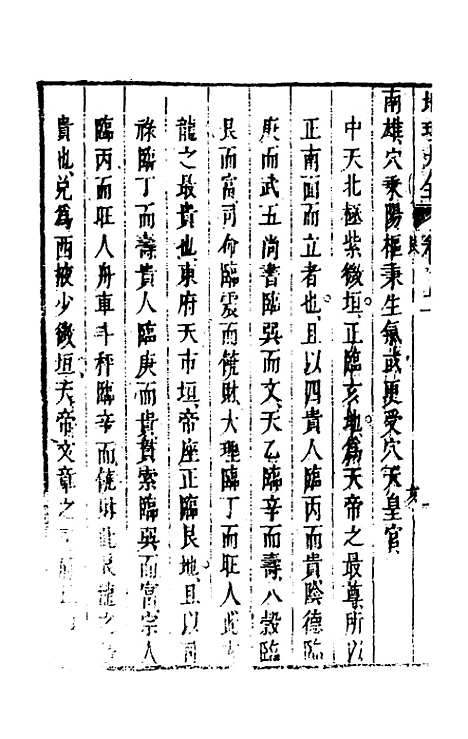 南雄穴乘陽樞秉生氣或更受穴天皇宫
中天北極紫微垣正臨亥地爲天帝之最尊所以
正南面而立者也且以四貴人臨丙而貴陰德臨
庚而武五尚書臨巽而文天乙臨辛而壽八穀臨
艮而富司命臨震而饒財大理臨丁而旺人此亥
龍之最貴也東府天市垣帝座正臨艮地且以司
祿臨丁而壽貴人臨庚而貴貫索臨巽而富宗人
臨丙而旺人舟車斗秤臨辛而饒財此艮龍之
貴也兌爲西掖少微垣天帝文章之